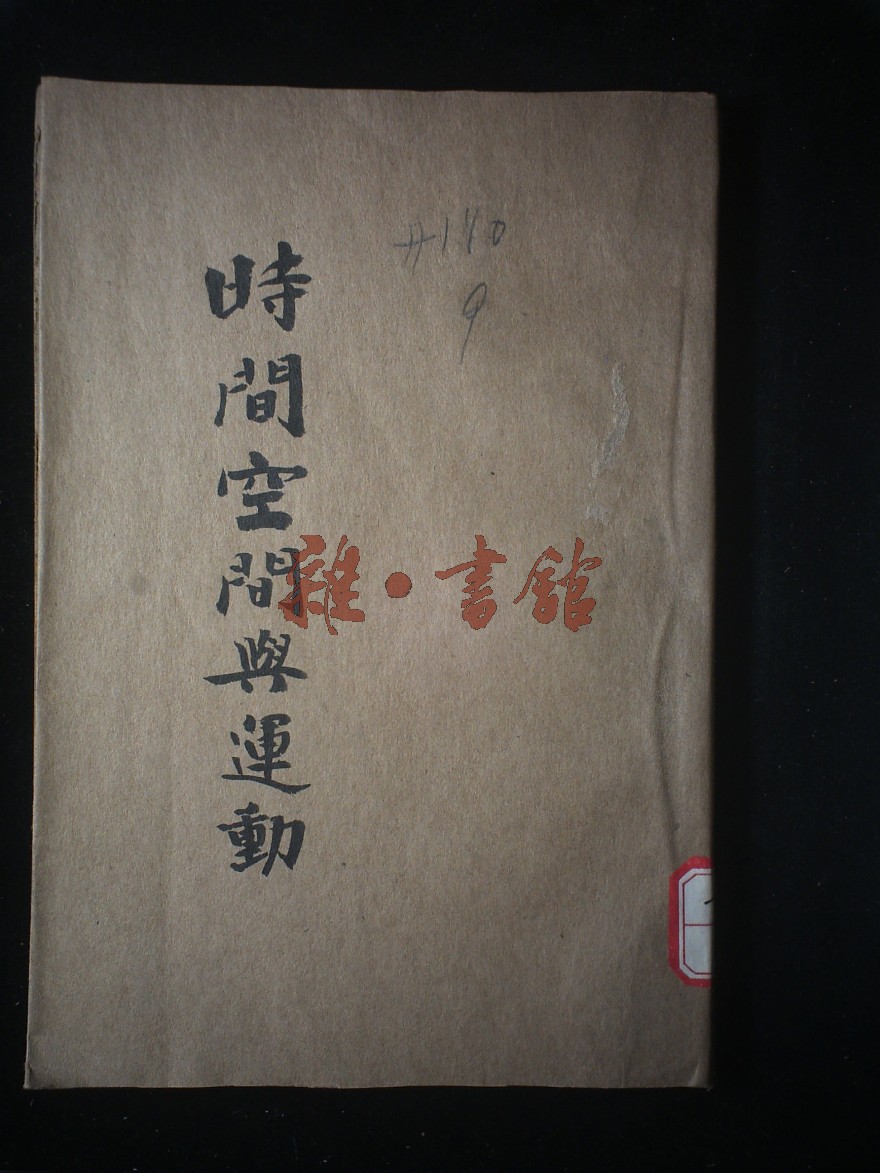 時間空間與運動
#170
9
雜·書館